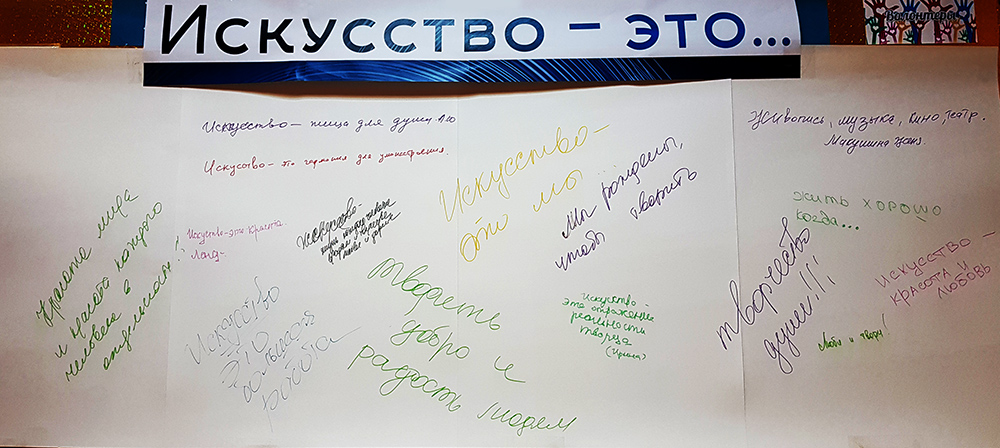 Искусство – это...
Волонтеры
Искусство – пища для души.
Искусство – это гармония для умиротворения.
Живопись, музыка, кино, театр.
Красота мира
и красота каждого
человека в
отдельности!
Искусство-это красота.
Искусство-
Искусство
это
большая
работа
творить
добро и
радость людям
Искусство-
это мы...
Мы рождены,
чтобы
творить
Искусство-
это отражение
реальности
творца
(Ирина)
жить хорошо
когда...
творчество
души!!!
Искусство -
красота и
любовь
Люби и твори!